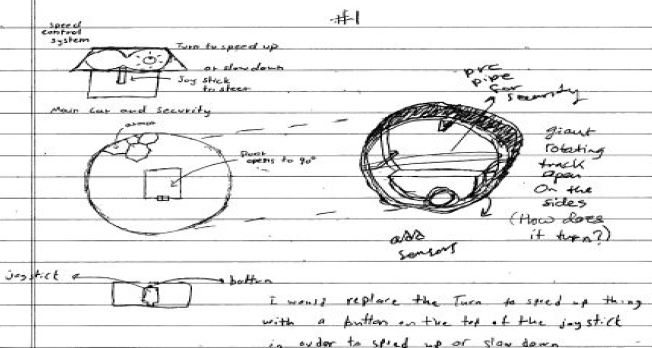 #1
speed
control
system
Turn to speed up
or slow down
Joy stick
to steer
Main Car and Security
armor
Door
opens to 90°
pvc
pipe
for
security
giant
rotating
track
open
on the
sides
(How does
it turn?)
add
sensors
joystick
button
i would replace the Turn to speed up thing
with a button on the top of the joystick
in order to speed up or slow down